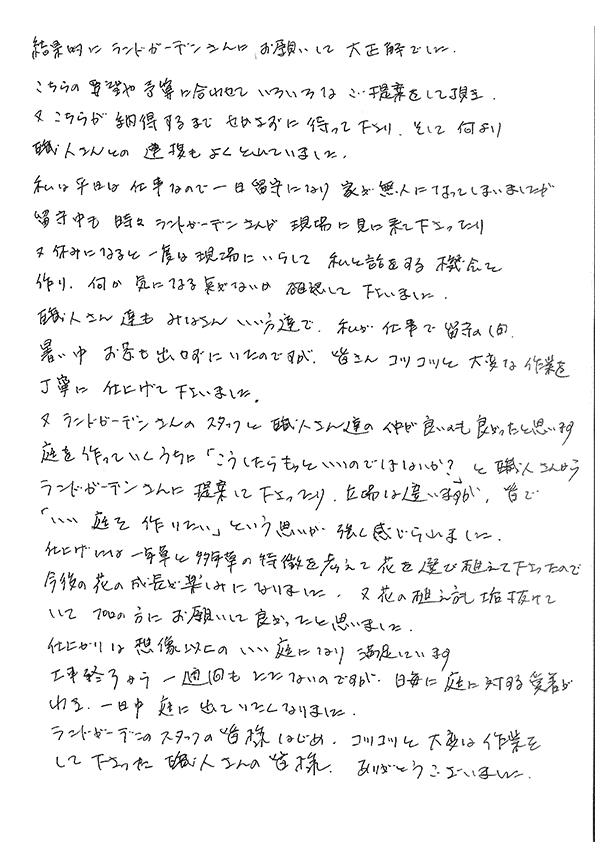 結果的に ランドガーデンさんに お願いして 大正解でした.
こちらの要望や予算に合わせて いろいろな ご提案をして頂き、
又 こちらが 納得するまで せかさずに 待って下さり、そして 何より
職人さんとの 連携も よくとれていました.
私は平日は 仕事なので 一日留守になり 家が無人になってしまいましたが
留守中も 時々 ランドガーデンさんが 現場に見に来て下さったり
又 休みになると 一度は 現場に いらして 私と話をする 機会を
作り、何か 気になる点がないか 確認して 下さいました.
職人さん達も みなさん いい方達で、私が 仕事で 留守の間、
暑い中 お茶も 出せずにいたのですが、皆さん コツコツと 大変な 作業を
丁寧に 仕上げて 下さいました。
又 ランドガーデンさんの スタッフと 職人さん達の 仲が良いのも 良かったと思います
庭を作っていくうちに「こうしたらもっといいのではないか? と 職人さんから
ランドガーデンさんに 提案して下さったり、立場は違いますが、皆で
「いい 庭を 作りたい」という思いが 強く感じられました.
仕上げには 一年草と 多年草の 特徴を考えて 花を選び植えて下さったので
今後の花の成長も 楽しみになりました. 又 花の植え方も 垢抜けて
いて プロの方に お願いして 良かったと思いました.
仕上がりは 想像以上の いい庭になり 満足しています
工事終了から 一週間も たたないのですが、日毎に 庭に対する愛着が
わき、一日中 庭に 出ていたくなりました.
ランドガーデンのスタッフの 皆様 はじめ、コツコツと 大変な 作業を
して 下さった 職人さんの 皆様、 ありがとうございました.